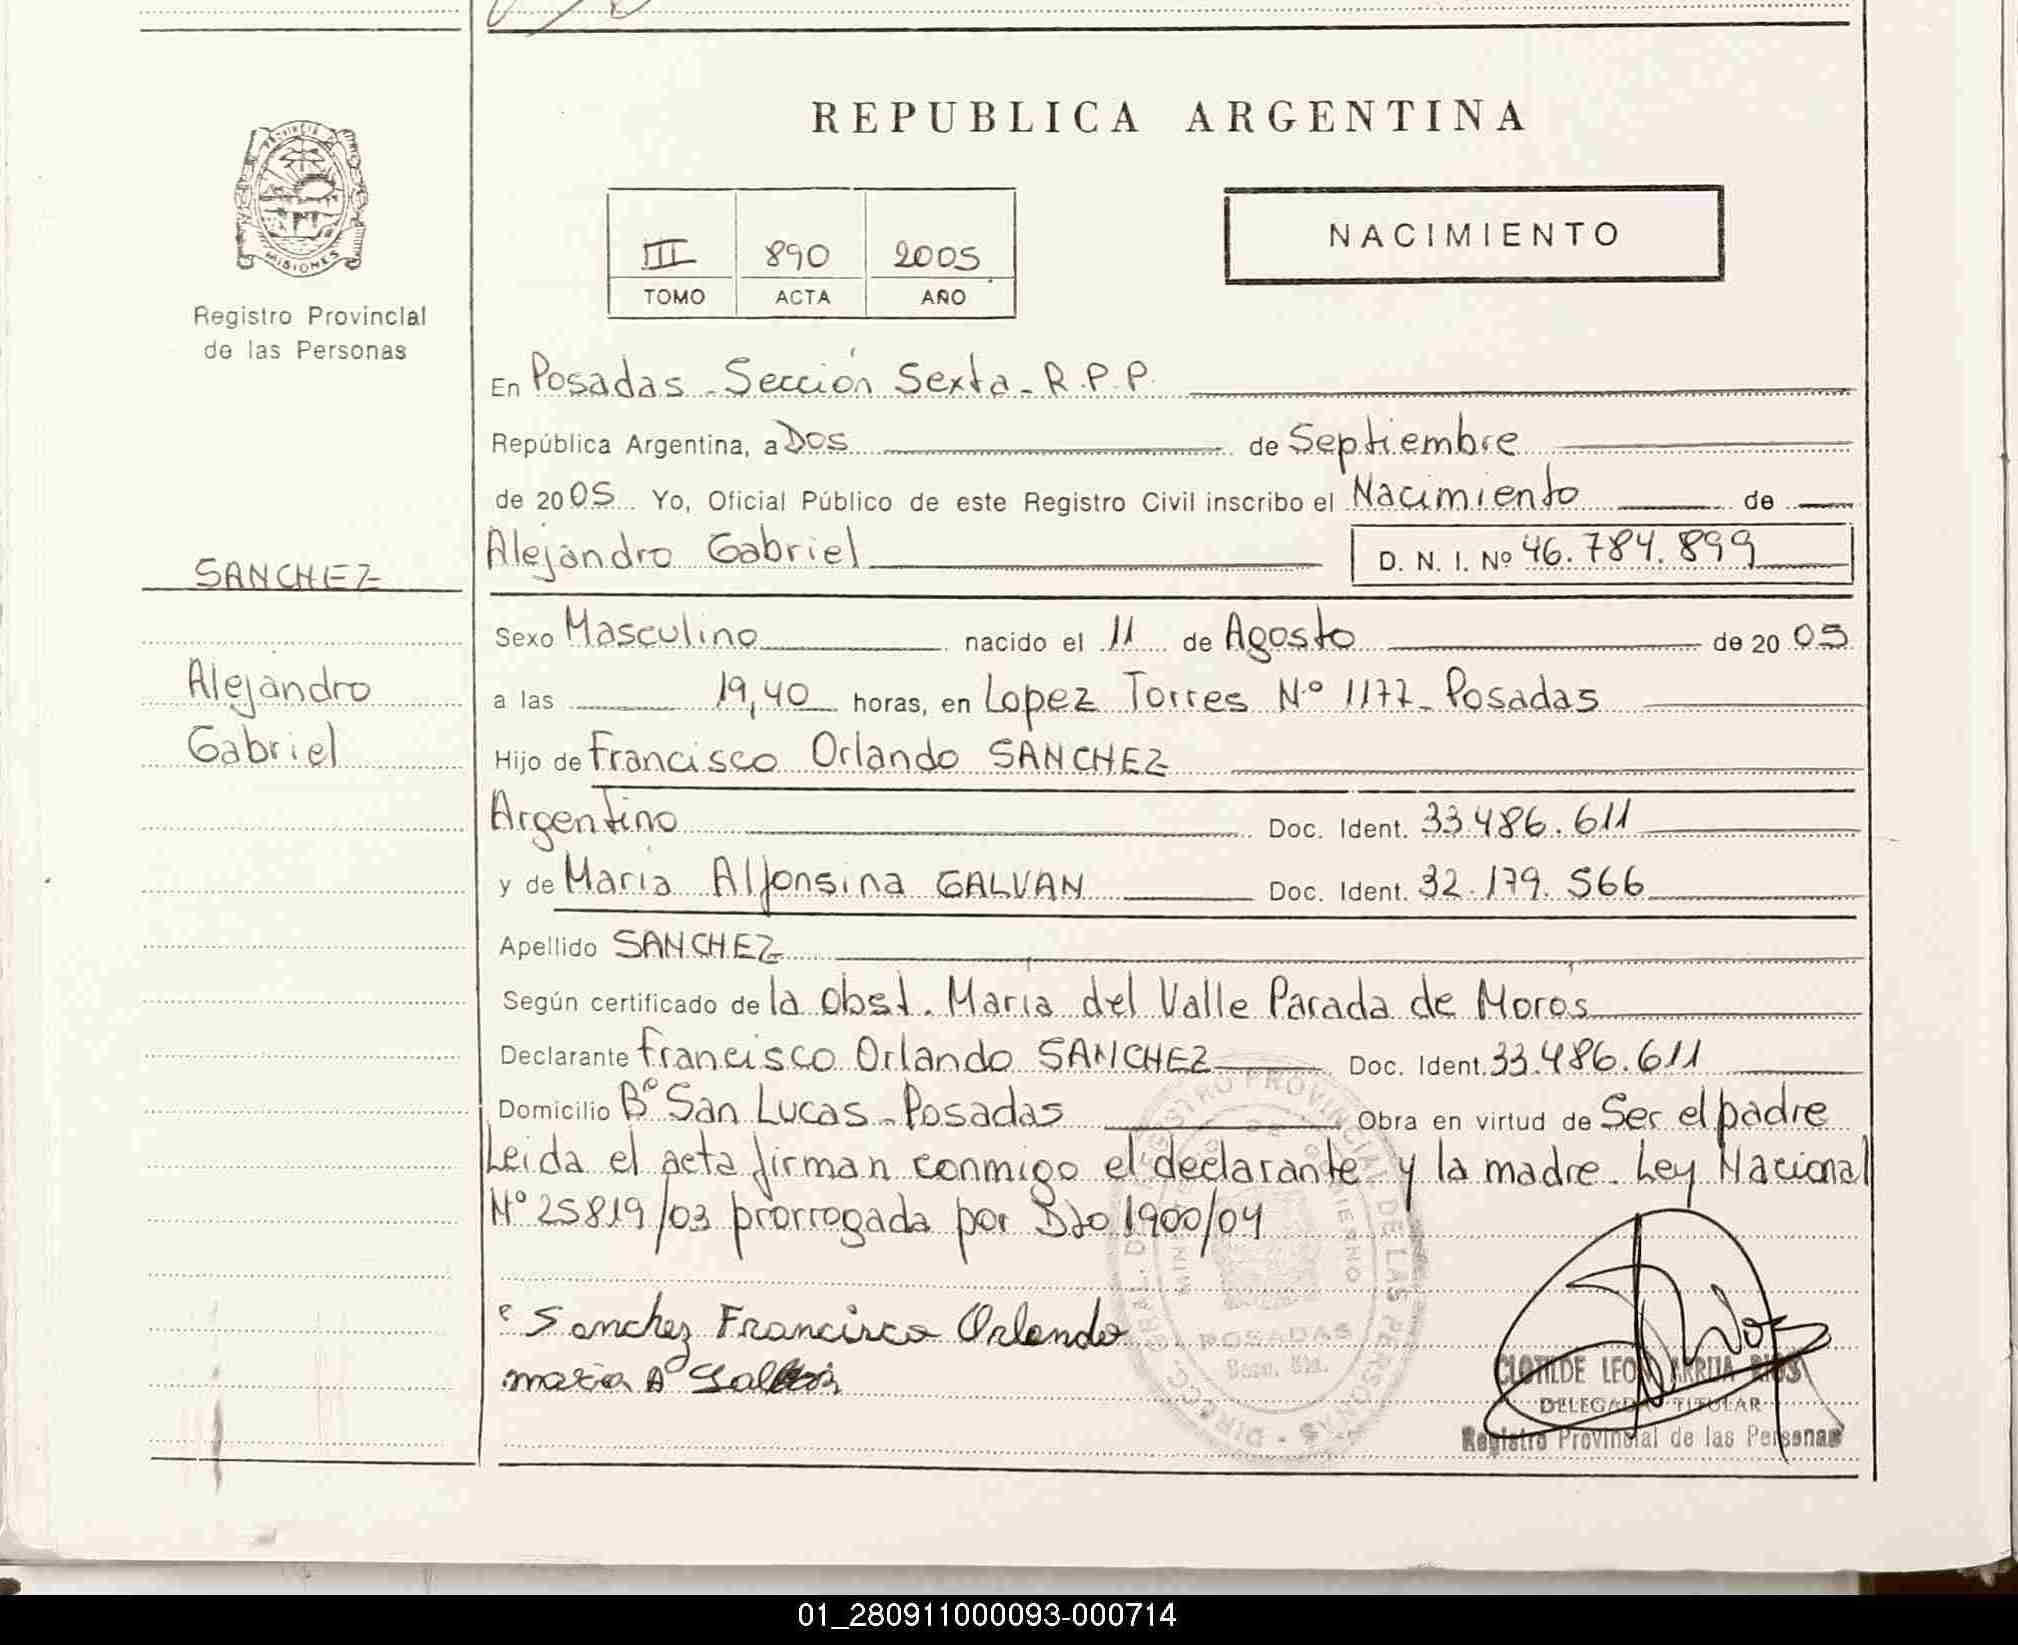 PROVINCIA
MISIONES
Registro Provincial
de las Personas
REPUBLICA ARGENTINA
III 890 2005
TOMO ACTA AÑO
NACIMIENTO
En Posadas - Sección Sexta - R.P.P.
República Argentina, a Dos de Septiembre
de 2005 Yo, Oficial Público de este Registro Civil inscribo el Nacimiento de
Alejandro Gabriel D. N. I. Nº 46.784.899
SANCHEZ
Alejandro
Gabriel
Sexo Masculino nacido el 11 de Agosto de 2005
a las 19,40 horas, en Lopez Torres Nº 1177 - Posadas
Hijo de Francisco Orlando SANCHEZ
Argentino Doc. Ident. 33.486.611
y de Maria Alfonsina GALVAN Doc. Ident. 32.179.566
Apellido SANCHEZ
Según certificado de la Obst. María del Valle Parada de Moros
Declarante Francisco Orlando SANCHEZ Doc. Ident. 33.486.611
Domicilio Bº San Lucas - Posadas Obra en virtud de Ser el padre
Leida el acta firman conmigo el declarante y la madre. Ley Nacional
Nº 25819/03 prorrogada por Dto 1900/04
Sanchez Francisco Orlando
maria A
POSADAS
CLOTILDE LEON ARRUA RIOS
DELEGADA TITULAR
Registro Provincial de las Personas
01_280911000093-000714